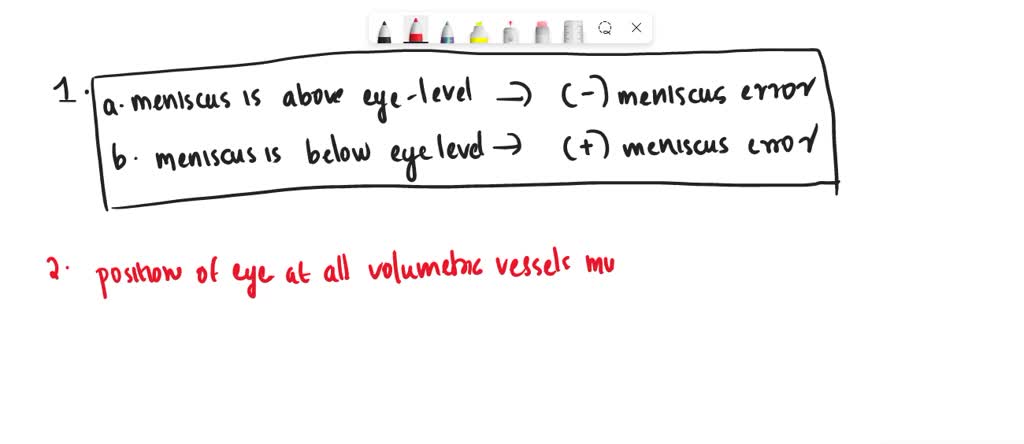 1. a. meniscus is above eye-level → (-) meniscus error
b. meniscus is below eye level → (+) meniscus error
2. position of eye at all volumetric vessels mu